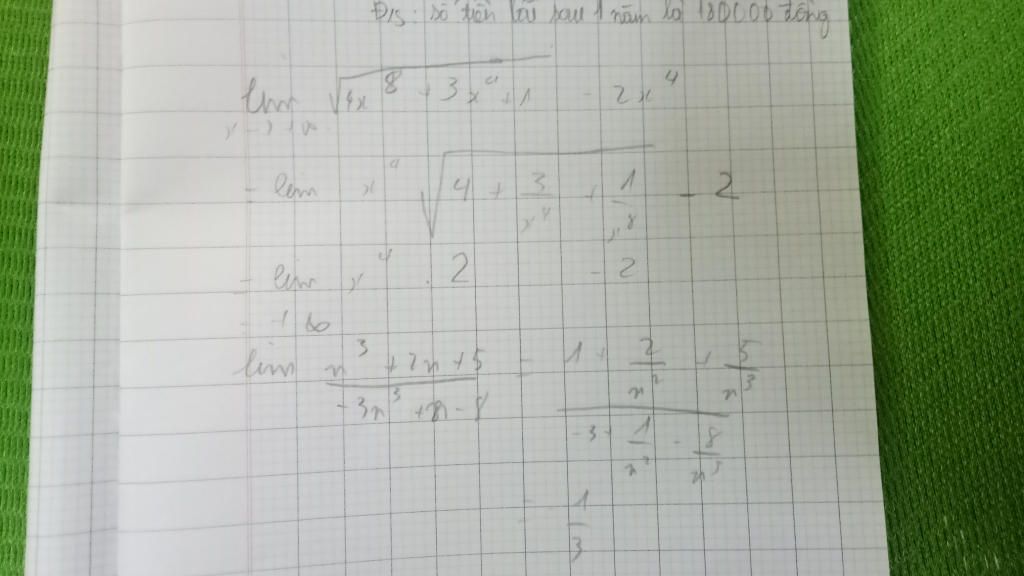 Đ/s: số tiền lãi sau 1 năm là 180000 đồng
lim √4x^8 + 3x^4 + 1 - 2x^4
x → +∞
= lim x^4 √4 + 3/x^4 + 1/x^8 - 2
= lim x^4 . 2 - 2
= +∞
lim (n^3 + 2n + 5)/(-3n^3 + n - 8) = (1 + 2/n^2 + 5/n^3)/(-3 + 1/n^2 - 8/n^3)
= 1/3